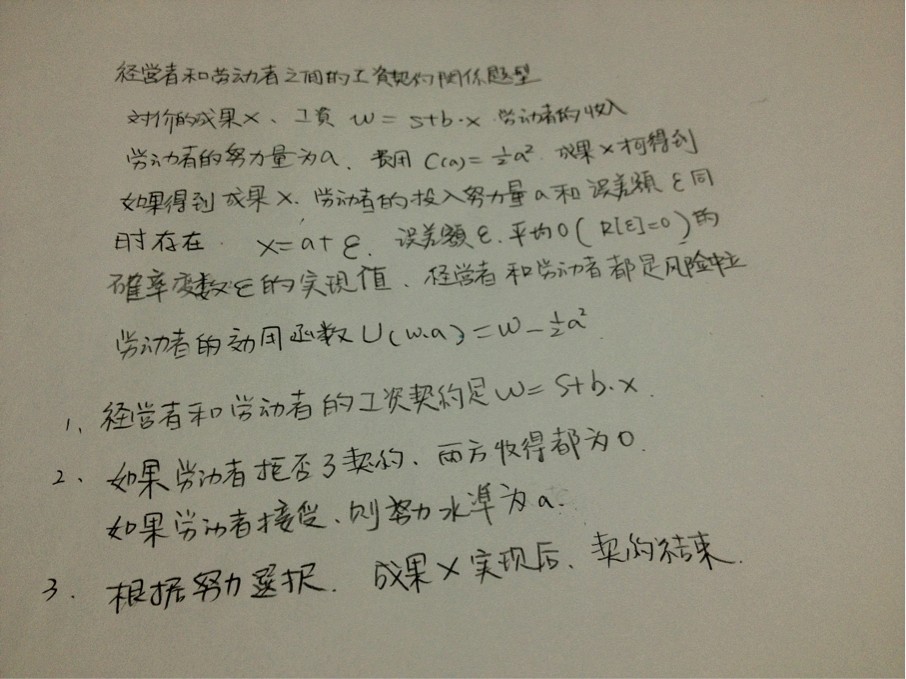 経営者和劳动者之间的工资契约関係题型
対价的成果x、工資 w = s+b·x 劳动者的收入
劳动者的努力量为a、费用 C(a)=½a² 成果x才可得到
如果得到成果x、劳动者的投入努力量a和误差额 ε同
时存在 x=a+ε. 误差額ε.平均0( R[ε]=0 )的
確率変数ε的实现值、经営者和劳动者都是风险中立
劳动者的効用函数U(w.a)=w-½a²
1、経営者和劳动者的工资契约是w= s+b·x.
2、如果劳动者拒否了契约、両方收得都为0.
如果劳动者接受、则努力水準为a.
3. 根据努力選択. 成果x实现后、契约结束.